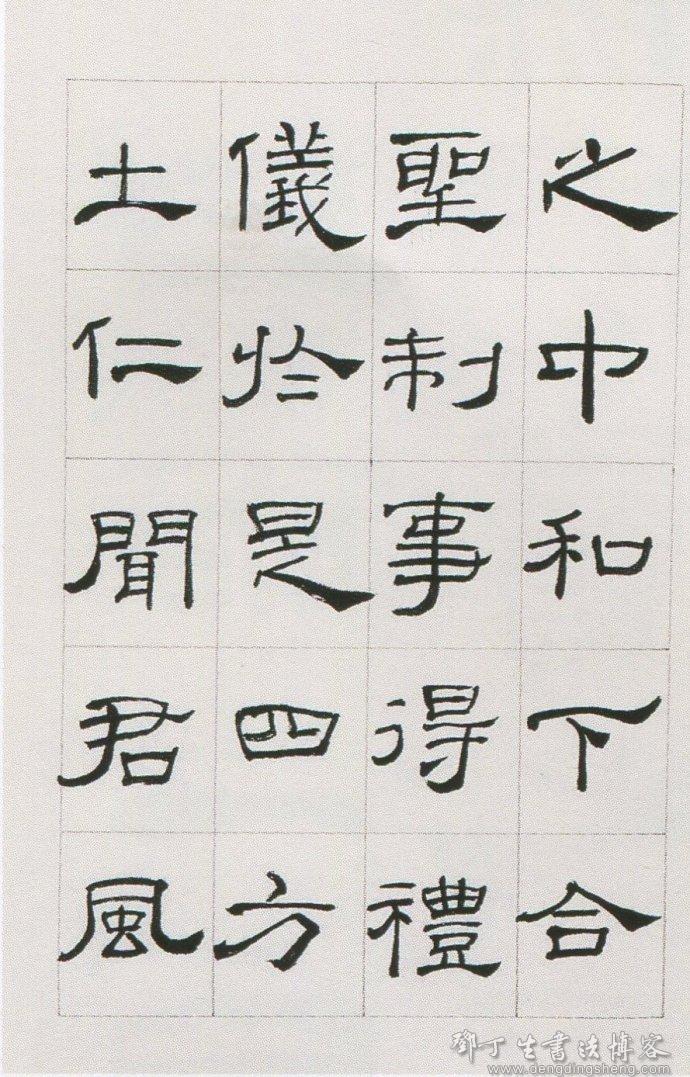 之中和下合
聖制事得禮
儀於是四方
土仁聞君風
鄧丁生書法博客
www.dengdingsheng.com